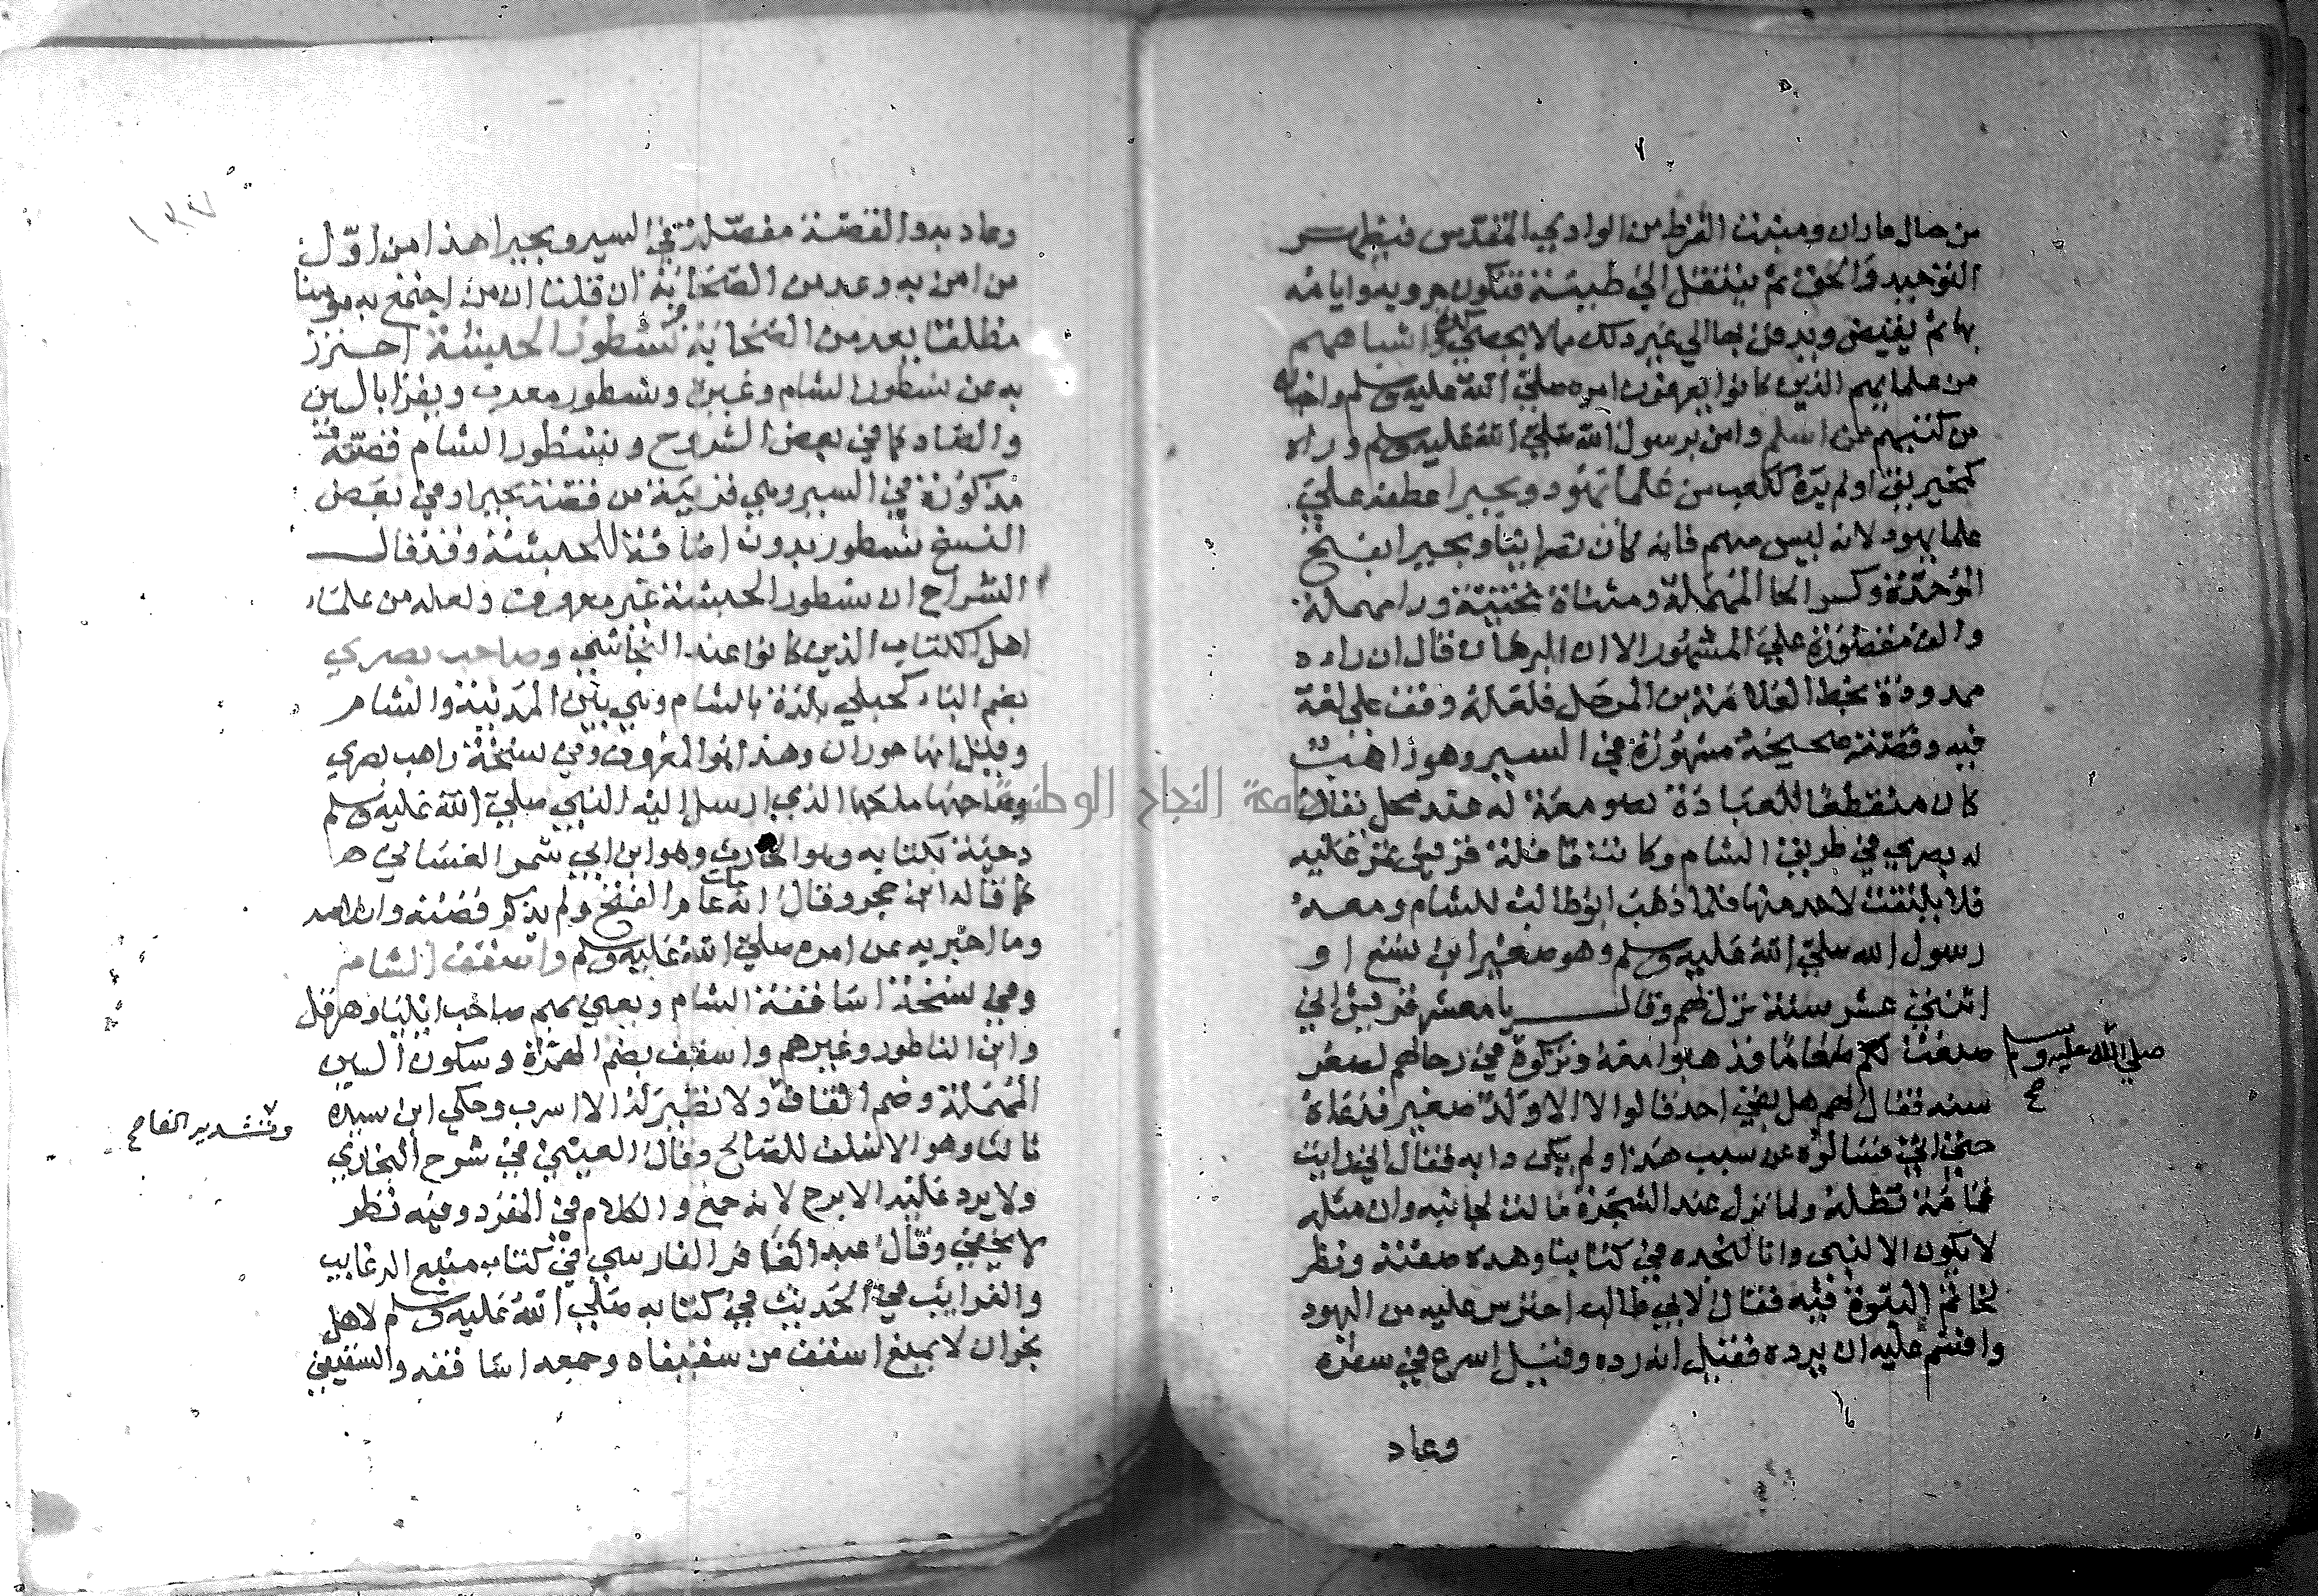 من جبال فاران ومنبت القرظ من الوادي المقدس فيظهر
التوحيد والحق ثم ينتقل الى طيبة فتكون حروبه وايامه
بها ثم يفيض ويدفن بها الي غير ذلك مما لا يحصي واشباههم
من علمايهم الذين كانوا يعرفون امره صلي الله عليه وسلم واخباره
من كتبهم ممن اسلم وامن برسول الله صلي الله عليه وسلم وراه
كمخيريق او لم يره ككعب من علما يهود وبحيرا عطفه علي
علما يهود لانه ليس منهم فانه كان نصرانيا وبحيرا بفتح
الموحدة وكسر الحا المهملة ومثناة تحتية ورا مهملة
والف مقصورة علي المشهور الا ان البرهان قال ان راه
ممدودة بخط العلامة بن المرحل فلعله وقف علي لغة
فيه وقصته صحيحة مشهورة في السير وهو راهب
كان منقطعا للعبادة بصومعة له عند محل يقال
له بصري في طريق الشام وكانت قافلة قريش تمر عليه
فلا يلتفت لاحد منها فلما ذهب ابو طالب للشام ومعه
رسول الله صلي الله عليه وسلم وهو صغير ابن تسع او
اثنتي عشر سنة نزل لهم وقال يا معشر قريش اني
صنعت لكم طعاما فذهبوا معه وتركوه في رحالهم لصغر
صلي الله عليه وسلم صح
سنه فقال لهم هل بقي احد قالوا لا الا ولد صغير فدعاه
حتي اتي فسالوه عن سبب هذا ولم يكن دابه فقال اني رايت
غمامة تظله ولما نزل عند الشجرة مالت لجانبه وان مثله
لا يكون الا لنبي وانا لنجده في كتابنا وهذه صفته ونظر
لخاتم النبوة فيه فقال لابي طالب احترس عليه من اليهود
واقسم عليه ان يرده فقيل انه رده وقيل اسرع في سفره
وعاد
١٣٧
وعاد به والقصة مفصلة في السير وبحيرا هذا من اول
من امن به وعد من الصحابة ان قلنا ان من اجتمع به مومنا
مطلقا يعد من الصحابة ونسطور الحبشة احترز
به عن نسطور الشام وغيره ونسطور معرب ويقرا بالسين
والصاد كما في بعض الشروح ونسطور الشام قصته
مذكورة في السير وهي قريبة من قصة بحيرا وفي بعض
النسخ نسطور بدون اضافة للحبشة وقد قال
الشراح ان نسطور الحبشة غير معروف ولعله من علماء
اهل الكتاب الذين كانوا عند النجاشي وصاحب بصري
بضم الباء كحبلي بلدة بالشام وهي بين المدينة والشام
وقيل انها حوران وهذا هو المعروف وفي نسخة راهب بصري
وصاحبها ملكها الذي ارسل اليه النبي صلي الله عليه وسلم
دحية بكتابه وهو الحارث وهو ابن ابي شمر الغساني
كما قاله ابن حجر وقال انه مات عام الفتح ولم يذكر قصته واسلامه
وما اخبر به عن امره صلي الله عليه وسلم واسقف الشام
وفي نسخة اساقفة الشام ويعني بهم صاحب ايليا وهرقل
وابن الناطور وغيرهم واسقف بضم الهمزة وسكون السين
المهملة وضم القاف ولا نظير له الا اسرب وحكي ابن سيده
وتشديد الفا صح
ثالثا وهو الاسلف للصالح وقال العيني في شرح البخاري
ولا يرد عليه الابرح لانه جمع والكلام في المفرد وفيه نظر
لا يخفي وقال عبد الغافر الفارسي في كتاب منبع الرغايب
والغرايب في الحديث في كتابه صلي الله عليه وسلم لاهل
نجران لا يمنع اسقف من سقيفاه وجمعه اساقفه والسقيفي
جامعة النجاح الوطنية